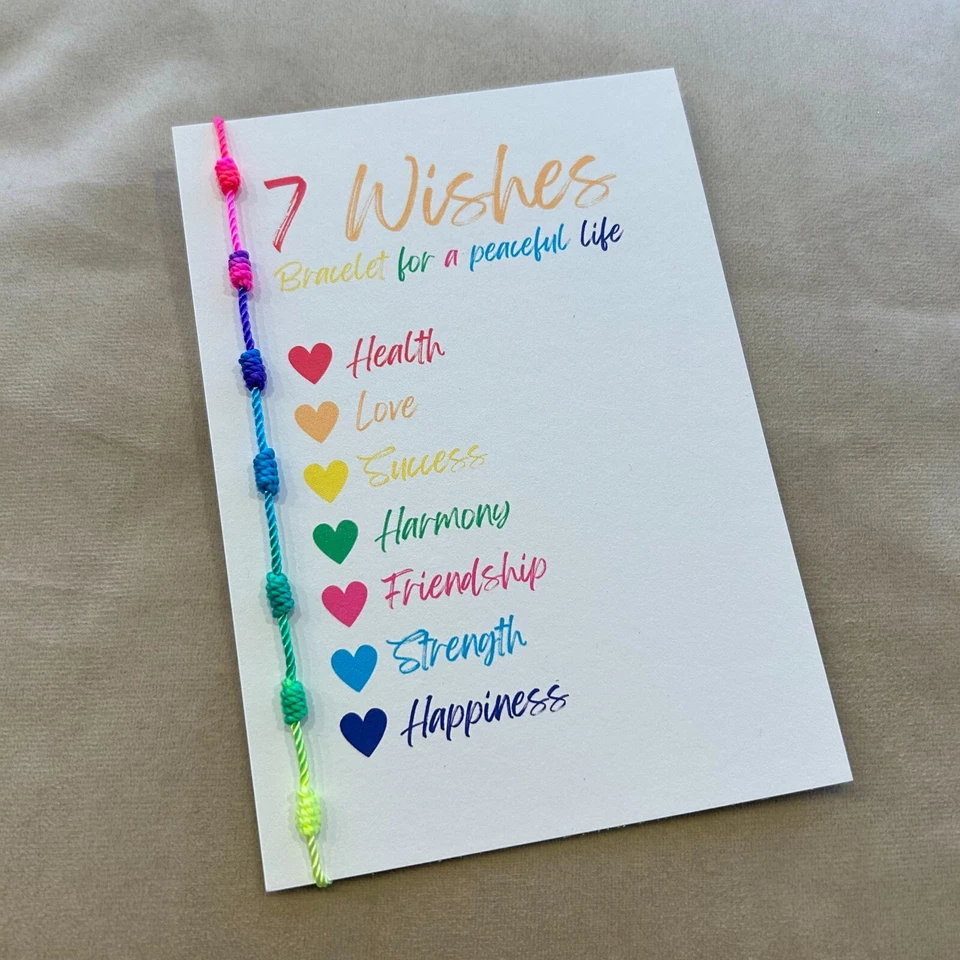 7 Wishes
Bracelet for a peaceful life
Health
Love
Success
Harmony
Friendship
Strength
Happiness